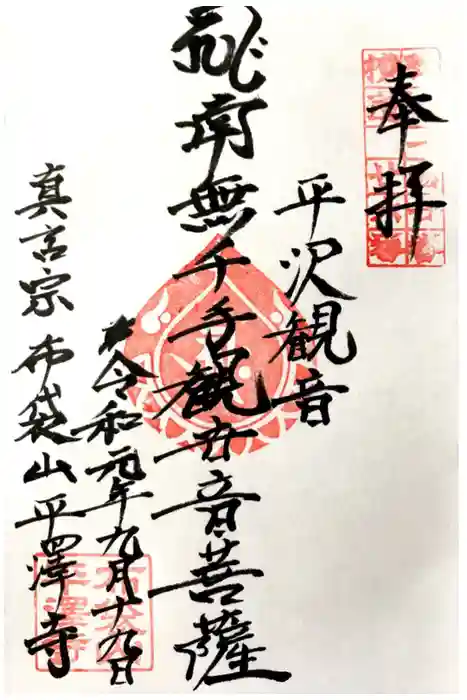 奉拝
平沢観音
南無千手観世音菩薩
令和元年九月十九日
真言宗 布袋山 平澤寺